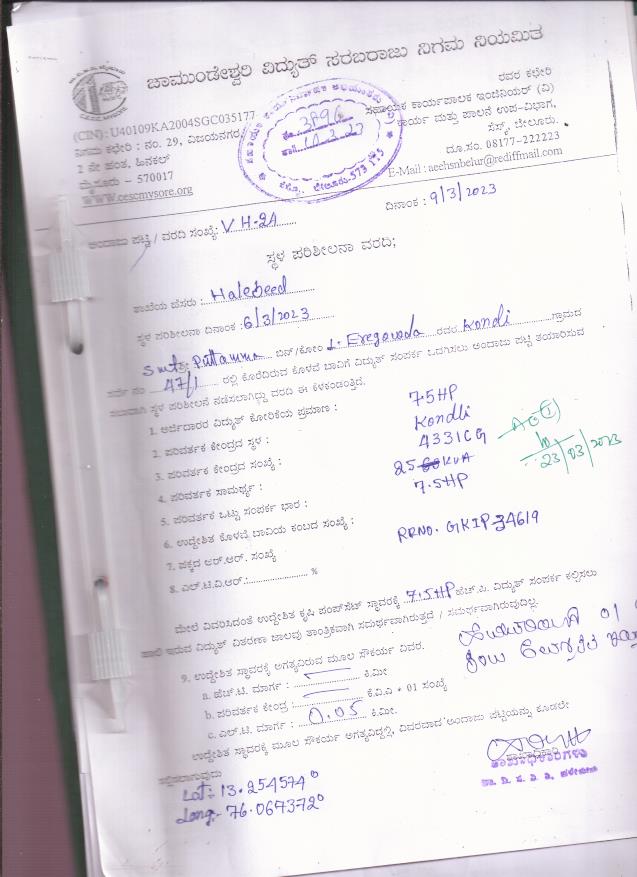 ಚಾಮುಂಡೇಶ್ವರಿ ವಿದ್ಯುತ್ ಸರಬರಾಜು ನಿಗಮ ನಿಯಮಿತ
C.E.S.C. MYSORE
(CIN): U40109KA2004SGC035177
ನಿಗಮ ಕಛೇರಿ : ನಂ. 29, ವಿಜಯನಗರ,
2 ನೇ ಹಂತ, ಹಿನಕಲ್
ಮೈಸೂರು – 570017
www.cescmysore.org
10.3.23
ರವರ ಕಛೇರಿ
ಸಹಾಯಕ ಕಾರ್ಯಪಾಲಕ ಇಂಜಿನಿಯರ್ (ವಿ)
ಕಾರ್ಯ ಮತ್ತು ಪಾಲನೆ ಉಪ-ವಿಭಾಗ,
ಸೆಸ್ಕ್, ಬೇಲೂರು.
ದೂ.ಸಂ. 08177-222223
E-Mail : aeehsnbelur@rediffmail.com
ದಿನಾಂಕ : 9/3/2023
ಅಂದಾಜು ಪಟ್ಟಿ / ವರದಿ ಸಂಖ್ಯೆ: VH-2A
ಸ್ಥಳ ಪರಿಶೀಲನಾ ವರದಿ;
ಶಾಖೆಯ ಹೆಸರು : Halebeed
ಸ್ಥಳ ಪರಿಶೀಲನಾ ದಿನಾಂಕ : 6/3/2023
Smt ಶ್ರೀ Puttamma ಬಿನ್/ಕೋಂ L. Eregowda ರವರ Kondli ಗ್ರಾಮದ
ಸರ್ವೆ ನಂ 47/1 ರಲ್ಲಿ ಕೊರೆದಿರುವ ಕೊಳವೆ ಬಾವಿಗೆ ವಿದ್ಯುತ್ ಸಂಪರ್ಕ ಒದಗಿಸಲು ಅಂದಾಜು ಪಟ್ಟಿ ತಯಾರಿಸುವ
ಸಲುವಾಗಿ ಸ್ಥಳ ಪರಿಶೀಲನೆ ನಡೆಸಲಾಗಿದ್ದು ವರದಿ ಈ ಕೆಳಕಂಡಂತಿದೆ.
1. ಅರ್ಜಿದಾರರ ವಿದ್ಯುತ್ ಕೋರಿಕೆಯ ಪ್ರಮಾಣ : 7.5HP
2. ಪರಿವರ್ತಕ ಕೇಂದ್ರದ ಸ್ಥಳ : Kondli
3. ಪರಿವರ್ತಕ ಕೇಂದ್ರದ ಸಂಖ್ಯೆ : 4331CG
4. ಪರಿವರ್ತಕ ಸಾಮರ್ಥ್ಯ : 25 KVA
5. ಪರಿವರ್ತಕ ಒಟ್ಟು ಸಂಪರ್ಕ ಭಾರ : 7.5HP
23/03/2023
6. ಉದ್ದೇಶಿತ ಕೊಳವೆ ಬಾವಿಯ ಕಂಬದ ಸಂಖ್ಯೆ :
7. ಪಕ್ಕದ ಆರ್.ಆರ್. ಸಂಖ್ಯೆ RRNO. GKIP 34619
8. ಎಲ್.ಟಿ.ವಿ.ಆರ್.:.................... %
ಮೇಲೆ ವಿವರಿಸಿದಂತೆ ಉದ್ದೇಶಿತ ಕೃಷಿ ಪಂಪ್‌ಸೆಟ್ ಸ್ಥಾವರಕ್ಕೆ 7.5HP ಹೆಚ್.ಪಿ. ವಿದ್ಯುತ್ ಸಂಪರ್ಕ ಕಲ್ಪಿಸಲು
ಹಾಲಿ ಇರುವ ವಿದ್ಯುತ್ ವಿತರಣಾ ಜಾಲವು ತಾಂತ್ರಿಕವಾಗಿ ಸಮರ್ಥವಾಗಿರುತ್ತದೆ / ಸಮರ್ಥವಾಗಿರುವುದಿಲ್ಲ.
9. ಉದ್ದೇಶಿತ ಸ್ಥಾವರಕ್ಕೆ ಅಗತ್ಯವಿರುವ ಮೂಲ ಸೌಕರ್ಯ ವಿವರ.
a. ಹೆಚ್.ಟಿ. ಮಾರ್ಗ : ಕಿ.ಮೀ
b. ಪರಿವರ್ತಕ ಕೇಂದ್ರ : ಕೆ.ವಿ.ಎ * 01 ಸಂಖ್ಯೆ
c. ಎಲ್.ಟಿ. ಮಾರ್ಗ : 0.05 ಕಿ.ಮೀ.
ಉದ್ದೇಶಿತ ಸ್ಥಾವರಕ್ಕೆ ಮೂಲ ಸೌಕರ್ಯ ಅಗತ್ಯವಿದ್ದಲ್ಲಿ, ವಿವರವಾದ ಅಂದಾಜು ಪಟ್ಟಿಯನ್ನು ಕೂಡಲೇ
ಸಲ್ಲಿಸಲಾಗುವುದು
Lat: 13.254574°
Long: 76.067372°
ಶಾಖಾಧಿಕಾರಿ
ಶಾಖಾಧಿಕಾರಿಗಳು